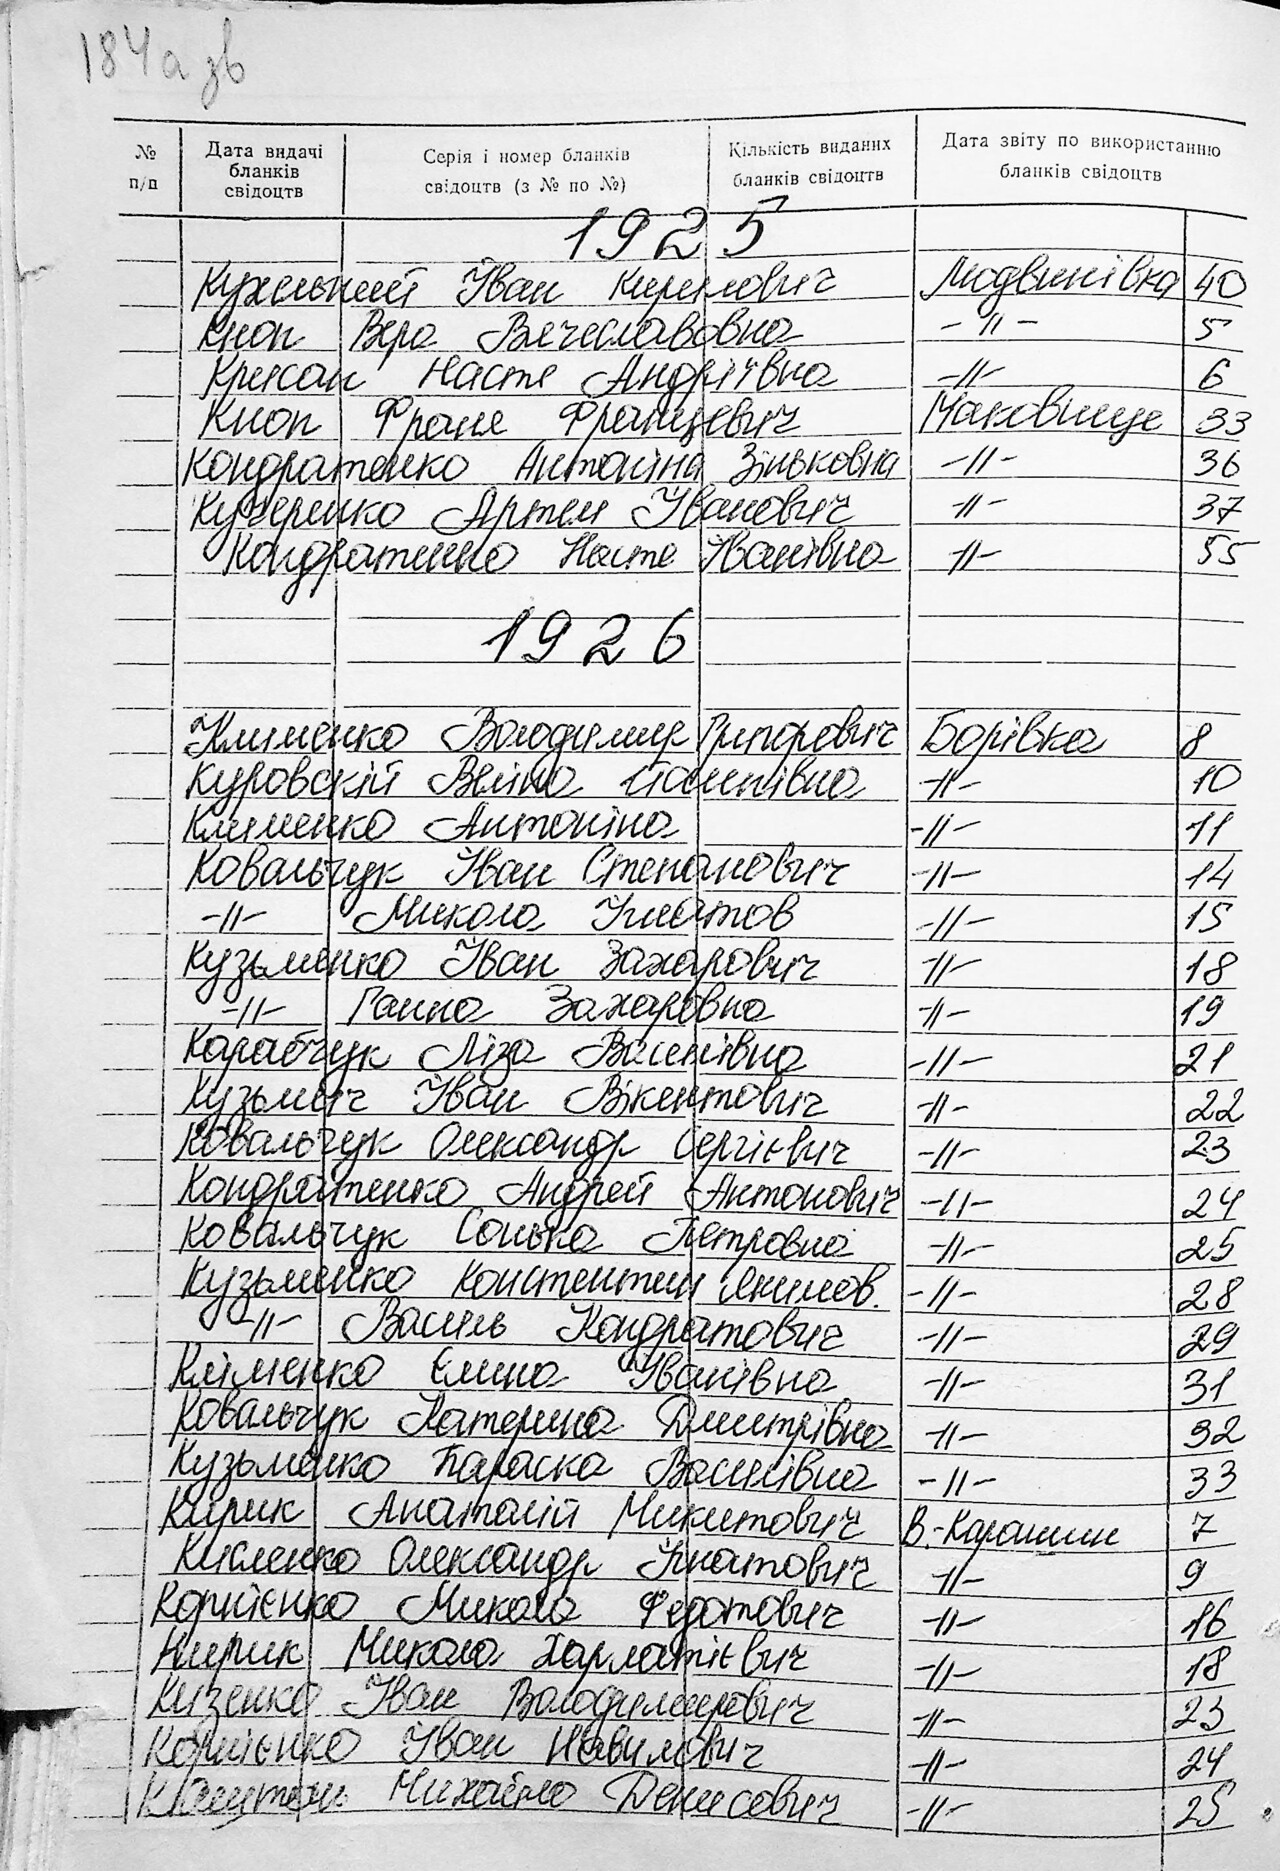 184а зв
№ п/п
Дата видачі бланків свідоцтв
Серія і номер бланків свідоцтв (з № по №)
Кількість виданих бланків свідоцтв
Дата звіту по використанню бланків свідоцтв
1925
Кухельний Іван Кирилович Модвинівка 40
Кноп Вера Вячеславовна -//- 5
Крисан Настя Андріївна -//- 6
Кноп Франя Францевич Маковище 33
Кондратенко Антоніна Зіньковна -//- 36
Кучеренко Артем Іванович -//- 37
Кондратенко Настя Іванівна -//- 55
1926
Клименко Володимир Григорович Борівка 8
Куровскій Веліна -//- 10
Клименко Антоніна -//- 11
Ковальчук Іван Степанович -//- 14
-//- Микола Ігнатов -//- 15
Кузьменко Іван Захарович -//- 18
-//- Ганна Захаровна -//- 19
Карабчук Ліза Василівна -//- 21
Кузьмич Іван Вікентович -//- 22
Ковальчук Олександр Сергієвич -//- 23
Кондратенко Андрей Антонович -//- 24
Ковальчук Сонька Петровна -//- 25
Кузьменко Константин Якимов. -//- 28
-//- Василь Кондратович -//- 29
Кліменко Єлина Іванівна -//- 31
Ковальчук Катерина Дмитрівна -//- 32
Кузьменко Параска Василівна -//- 33
Кирик Анатолій Микитович В.-Карашин 7
Кисленко Олександр Ігнатович -//- 9
Корнієнко Микола Федотович -//- 16
Кирик Микола Харлатієвич -//- 18
Кизенко Іван Володимирович -//- 23
Корнієнко Іван Павилович -//- 24
Михайло Денисович -//- 25